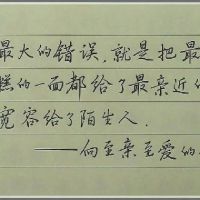 最大的错误,就是把最
糕的一面都给了最亲近的
宽容给了陌生人.
——向至亲至爱的